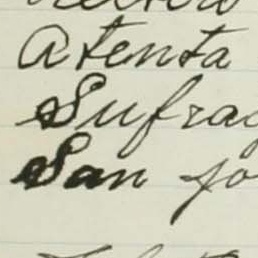 Atenta
Sufrag
San jo